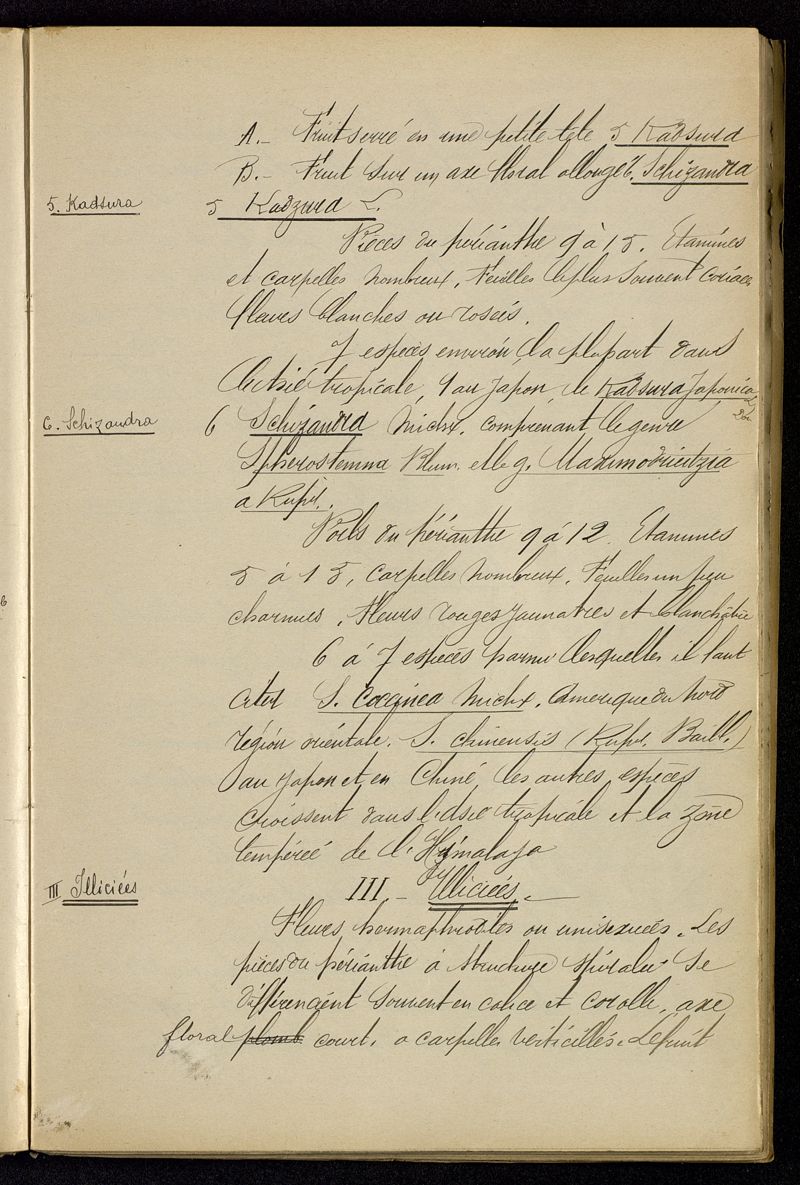 A. – Fruit serré en une petite tête 5 Kadsura
B. – Fruit sur un axe floral allongé 6. Schizandra
5. Kadsura
5 Kadzura L.
Pièces du périanthe 9 à 15. Etamines
et carpelles nombreux. Feuilles le plus souvent coriaces
fleurs blanches ou rosées.
7 espèces environ, la plupart dans
l'Asie tropicale, 1 au Japon, le Kadsura Japonica
6. Schizandra
6 Schizandra Michx. comprenant le genre
Spherostemma Blum. et le g. Maximowicztzia
a Rupr.
du périanthe 9 à 12. Etamines
5 à 15, carpelles nombreux. Feuilles un peu
charnues. Fleurs rouges jaunatres et blanchâtre
6 à 7 espèces parmi lesquelles il faut
citer S. Coccinea Michx. Amerique du Nord
région orientale. S. chinensis (Rupr. Baill.)
au Japon et en Chine, les autres espèces
croissent dans l'Asie tropicale et la zône
tempérée de l'Hymalaya
III Illiciées
III – Illiciées. –
Fleurs hermaphrodites ou unisexuées. Les
pièces du périanthe à structure spiralée se
différencient souvent en calice et corolle, axe
floral plomb court. o carpelles verticillés. Le fruit